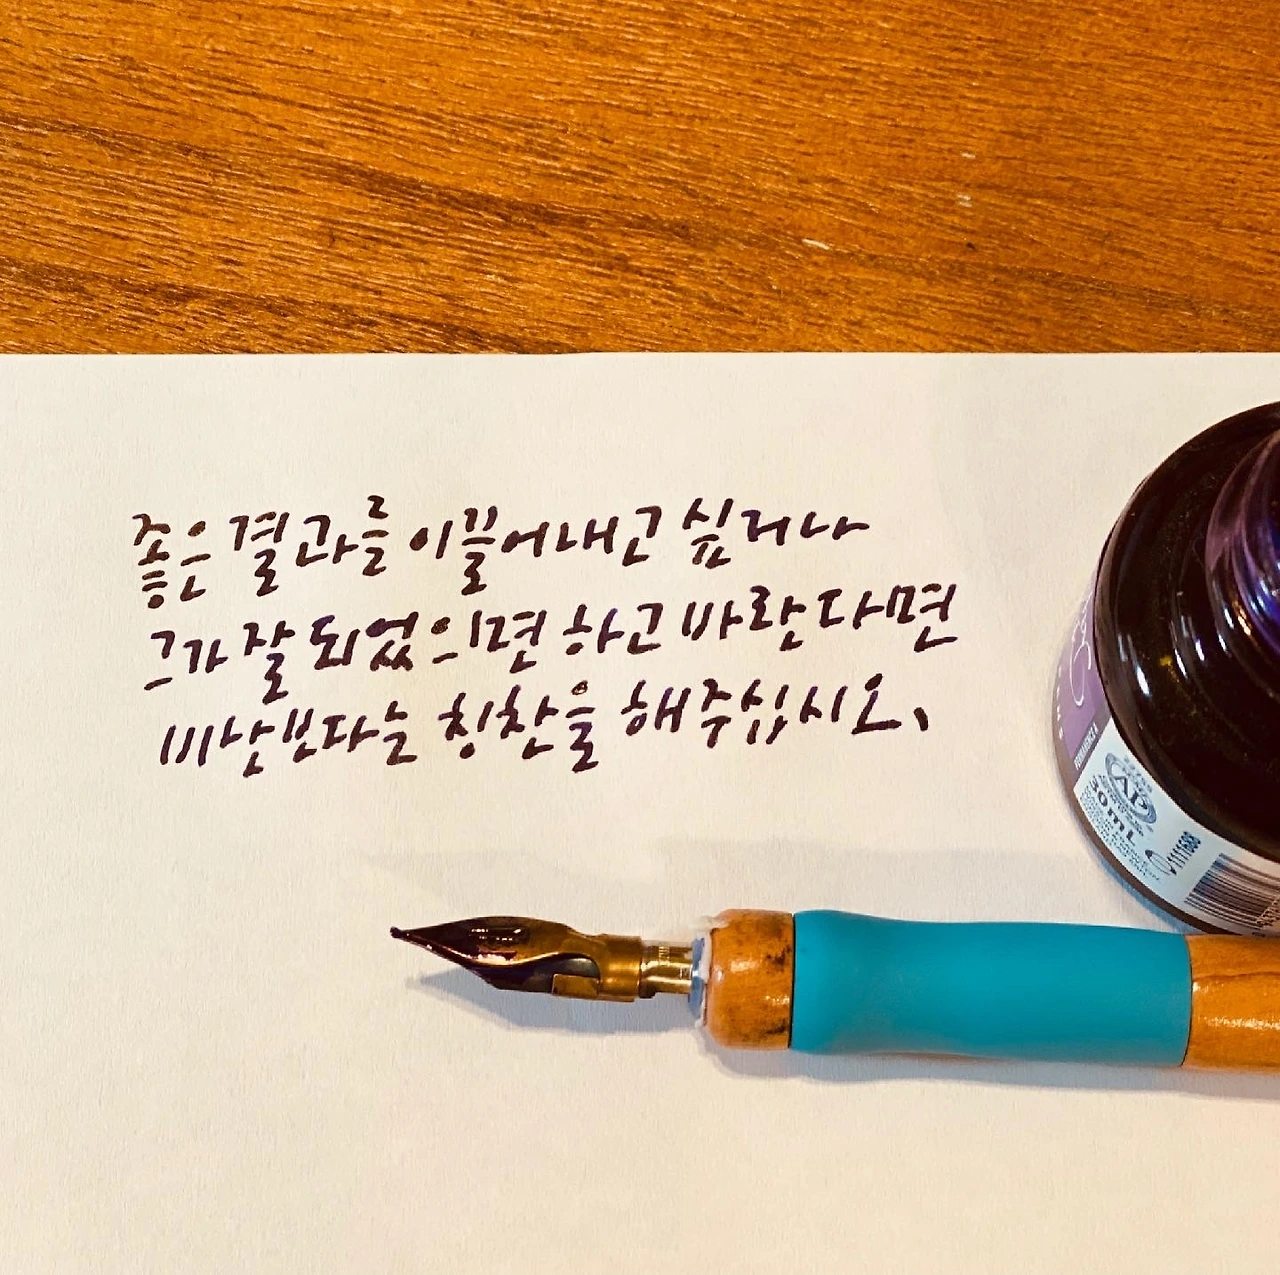 좋은 결과를 이끌어내고 싶거나
그가 잘 되었으면 하고 바란다면
비난보다는 칭찬을 해주십시오.
AP
30 mL